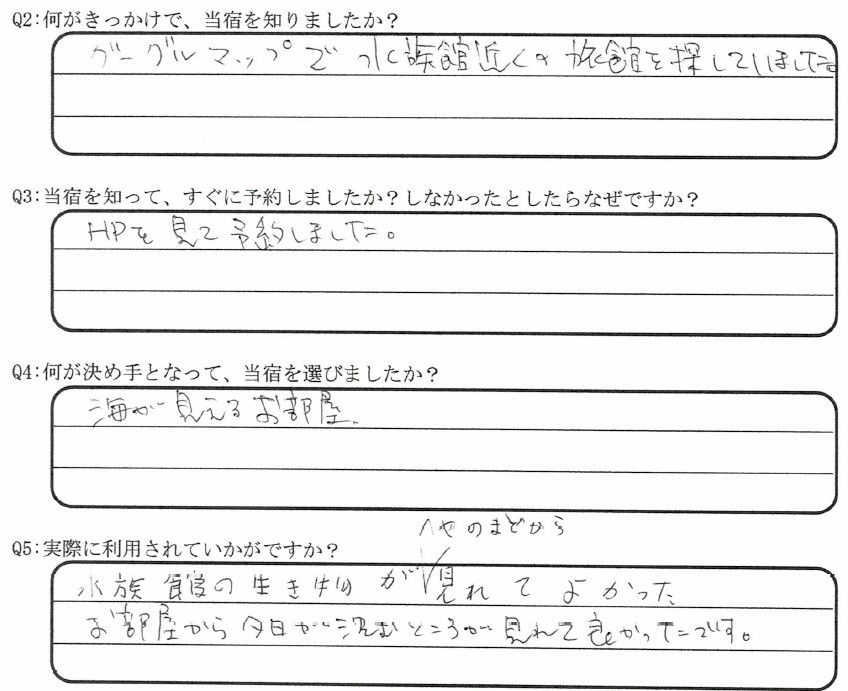 Q2:何がきっかけで、当宿を知りましたか？
グーグルマップで水族館近くの旅館を探していました。
Q3:当宿を知って、すぐに予約しましたか？しなかったとしたらなぜですか？
HPを見て予約しました。
Q4:何が決め手となって、当宿を選びましたか？
海が見えるお部屋
へやのまどから
Q5:実際に利用されていかがですか？
水族館の生き物が見れてよかった
お部屋から夕日が沈むところが見れて良かったです。